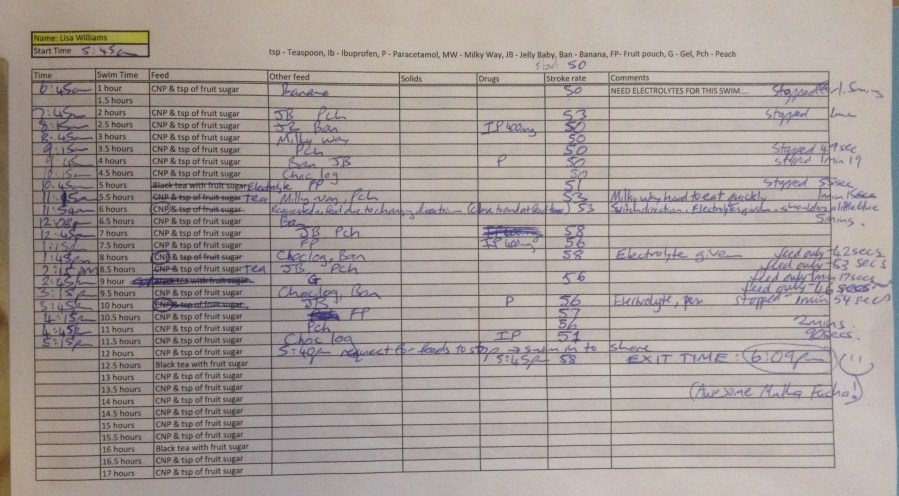 Name: Lisa Williams
Start Time 5:45am
tsp - Teaspoon, Ib - Ibuprofen, P - Paracetamol, MW - Milky Way, JB - Jelly Baby, Ban - Banana, FP- Fruit pouch, G - Gel, Pch - Peach
50
Time Swim Time Feed Other feed Solids Drugs Stroke rate Comments
6:45am 1 hour CNP & tsp of fruit sugar banana 50 NEED ELECTROLYTES FOR THIS SWIM.... Stopped 1.5mins
1.5 hours
7:45am 2 hours CNP & tsp of fruit sugar JB Pch 53 Stopped 1min
8:15am 2.5 hours CNP & tsp of fruit sugar JB Ban IP 400mg 50
8:45am 3 hours CNP & tsp of fruit sugar Milky way 50
9:15am 3.5 hours CNP & tsp of fruit sugar Pch 50 Stopped 49sec
9:45am 4 hours CNP & tsp of fruit sugar Ban JB P 50 stopped 1min 19
10:15am 4.5 hours CNP & tsp of fruit sugar Choc log 50
10:45am 5 hours Black tea with fruit sugar Electrolyte FP 51 Stopped 55sec
11:15am 5.5 hours CNP & tsp of fruit sugar tea Milky way, Pch 53 Milky way hard to eat quickly 1min
6 hours CNP & tsp of fruit sugar Requested no feed due to change direction 53 Switch direction. Electrolyte given.
6.5 hours CNP & tsp of fruit sugar Ban 5mins.
12:45pm 7 hours CNP & tsp of fruit sugar JB, Pch 58
1:15pm 7.5 hours CNP & tsp of fruit sugar FP IP 400mg 56
1:45pm 8 hours CNP & tsp of fruit sugar Choclog, Ban 58 Electrolyte given feed only - 42secs
2:15pm 8.5 hours CNP & tsp of fruit sugar tea JB Pch feed only - 53 secs
2:45pm 9 hour Black tea with fruit sugar G 56 feed only 1min 17secs
9.5 hours CNP & tsp of fruit sugar Choclog, Ban feed only - 46 secs
3:45pm 10 hours CNP & tsp of fruit sugar JB P 56 Electrolyte, stopped - 1min 54 secs
4:15pm 10.5 hours CNP & tsp of fruit sugar FP 57
4:45pm 11 hours CNP & tsp of fruit sugar Pch 56 2mins.
5:15pm 11.5 hours CNP & tsp of fruit sugar Choc log IP 90secs.
12 hours CNP & tsp of fruit sugar 5:40pm request for feeds to stop → swim in to shore
12.5 hours Black tea with fruit sugar 5:45pm 58 EXIT TIME: 6:09pm
13 hours CNP & tsp of fruit sugar
13.5 hours CNP & tsp of fruit sugar
14 hours CNP & tsp of fruit sugar (Awesome Mutha Fucha!)
14.5 hours CNP & tsp of fruit sugar
15 hours CNP & tsp of fruit sugar
15.5 hours CNP & tsp of fruit sugar
16 hours Black tea with fruit sugar
16.5 hours CNP & tsp of fruit sugar
17 hours CNP & tsp of fruit sugar